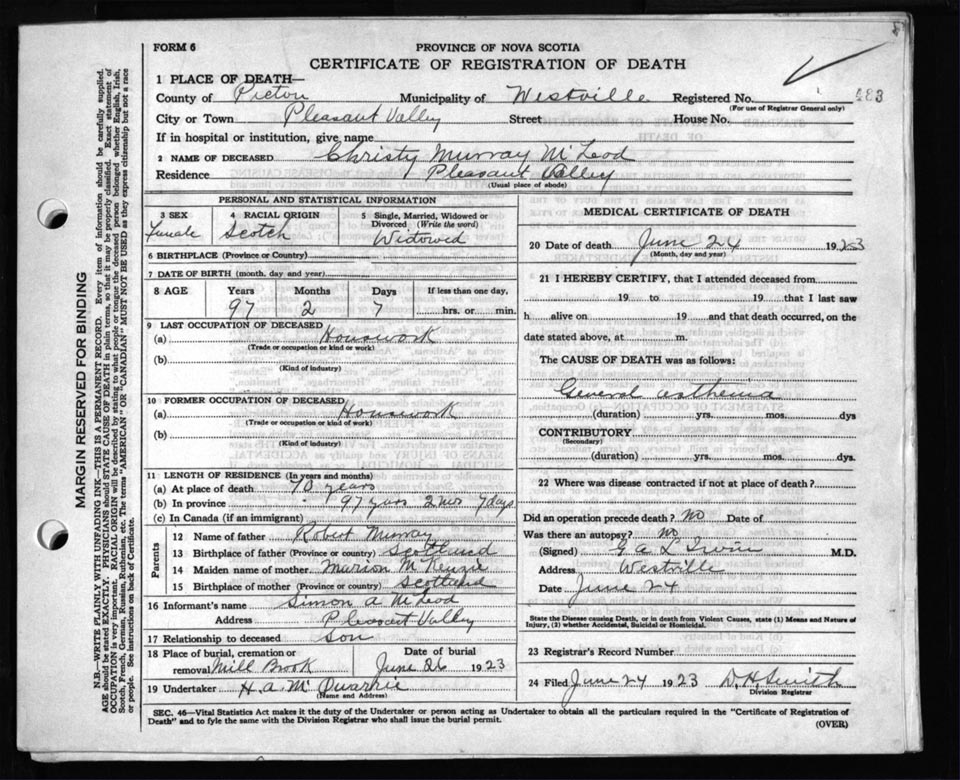 FORM 6
PROVINCE OF NOVA SCOTIA
CERTIFICATE OF REGISTRATION OF DEATH
1 PLACE OF DEATH—
County of Pictou Municipality of Westville Registered No. 483
(For use of Registrar General only)
City or Town Pleasant Valley Street House No.
If in hospital or institution, give name
2 NAME OF DECEASED Christy Murray McLeod
Residence Pleasant Valley
(Usual place of abode)
PERSONAL AND STATISTICAL INFORMATION
3 SEX 4 RACIAL ORIGIN 5 Single, Married, Widowed or Divorced (Write the word)
Female Scotch Widowed
6 BIRTHPLACE (Province or Country)
7 DATE OF BIRTH (month, day and year)
8 AGE Years Months Days If less than one day,
97 2 7 hrs. or min.
9 LAST OCCUPATION OF DECEASED
(a) Housework
(Trade or occupation or kind of work)
(b)
(Kind of industry)
10 FORMER OCCUPATION OF DECEASED
(a) Housework
(Trade or occupation or kind of work)
(b)
(Kind of industry)
11 LENGTH OF RESIDENCE (In years and months)
(a) At place of death 70 years
(b) In province 97 years 2 mos 7 days
(c) In Canada (if an immigrant)
Parents
12 Name of father Robert Murray
13 Birthplace of father (Province or country) Scotland
14 Maiden name of mother Marion McKenzie
15 Birthplace of mother (Province or country) Scotland
16 Informant's name Simon A McLeod
Address Pleasant Valley
17 Relationship to deceased Son
18 Place of burial, cremation or Date of burial
removal Mill Brook June 26 1923
19 Undertaker H. A. Mc
(Name and Address)
MEDICAL CERTIFICATE OF DEATH
20 Date of death June 24 1923
(Month, day and year)
21 I HEREBY CERTIFY, that I attended deceased from
19 to 19 that I last saw
h alive on 19 and that death occurred, on the
date stated above, at m.
The CAUSE OF DEATH was as follows:
General asthenia
(duration) yrs. mos. dys
CONTRIBUTORY
(Secondary)
(duration) yrs. mos. dys
22 Where was disease contracted if not at place of death?
Did an operation precede death? No Date of
Was there an autopsy? No
(Signed) G A L Irwin M.D.
Address Westville
Date June 24
State the Disease causing Death, or in death from Violent Causes, state (1) Means and Nature of
Injury, (2) whether Accidental, Suicidal or Homicidal.
23 Registrar's Record Number
24 Filed June 24 1923 D. H. Smith
Division Registrar
SEC. 46—Vital Statistics Act makes it the duty of the Undertaker or person acting as Undertaker to obtain all the particulars required in the "Certificate of Registration of
Death" and to fyle the same with the Division Registrar who shall issue the burial permit.
(OVER)
MARGIN RESERVED FOR BINDING
N.B.—WRITE PLAINLY WITH UNFADING INK—THIS IS A PERMANENT RECORD. Every item of information should be carefully supplied.
AGE should be stated EXACTLY. PHYSICIANS should STATE CAUSE OF DEATH in plain terms, so that it may be properly classified. Exact statement of
OCCUPATION is very important. RACIAL ORIGIN will be described by stating to what people or tongue the deceased person belonged whether English, Irish,
Scotch, French, German, Russian, Ruthenian, etc. The terms "AMERICAN" OR "CANADIAN" MUST NOT BE USED as they express citizenship but not a race
or people. See instructions on back of Certificate.